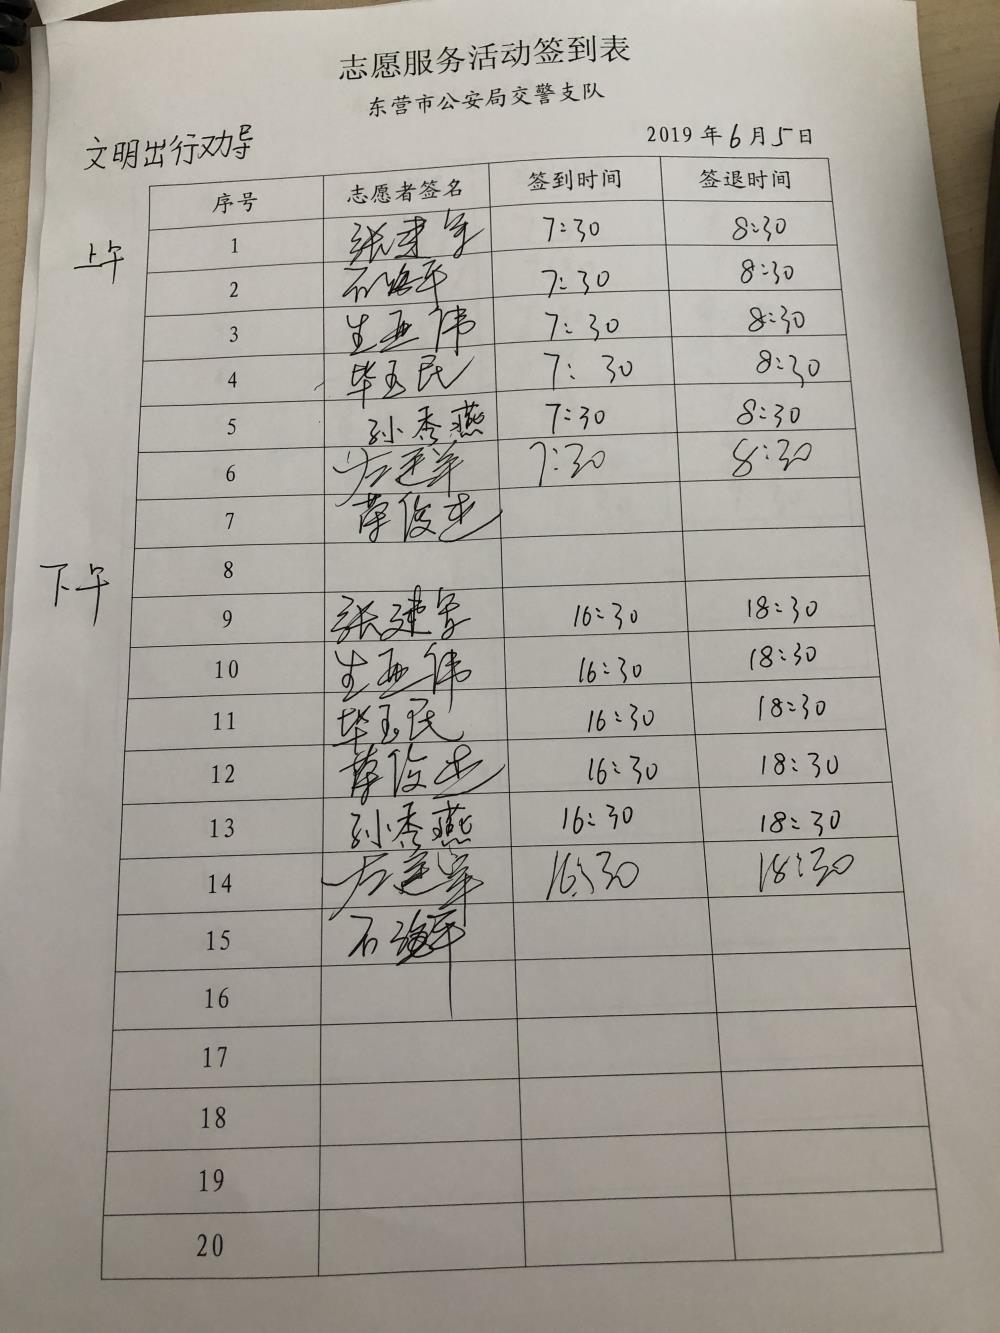 志愿服务活动签到表
东营市公安局交警支队
文明出行劝导 2019年6月5日
序号 志愿者签名 签到时间 签退时间
上午
1 张建军 7:30 8:30
2 7:30 8:30
3 生亚伟 7:30 8:30
4 毕玉民 7:30 8:30
5 孙秀燕 7:30 8:30
6 7:30 8:30
7 俊杰
8
下午
9 张建军 16:30 18:30
10 生亚伟 16:30 18:30
11 毕玉民 16:30 18:30
12 俊杰 16:30 18:30
13 孙秀燕 16:30 18:30
14 16:30 18:30
15 石海军
16
17
18
19
20